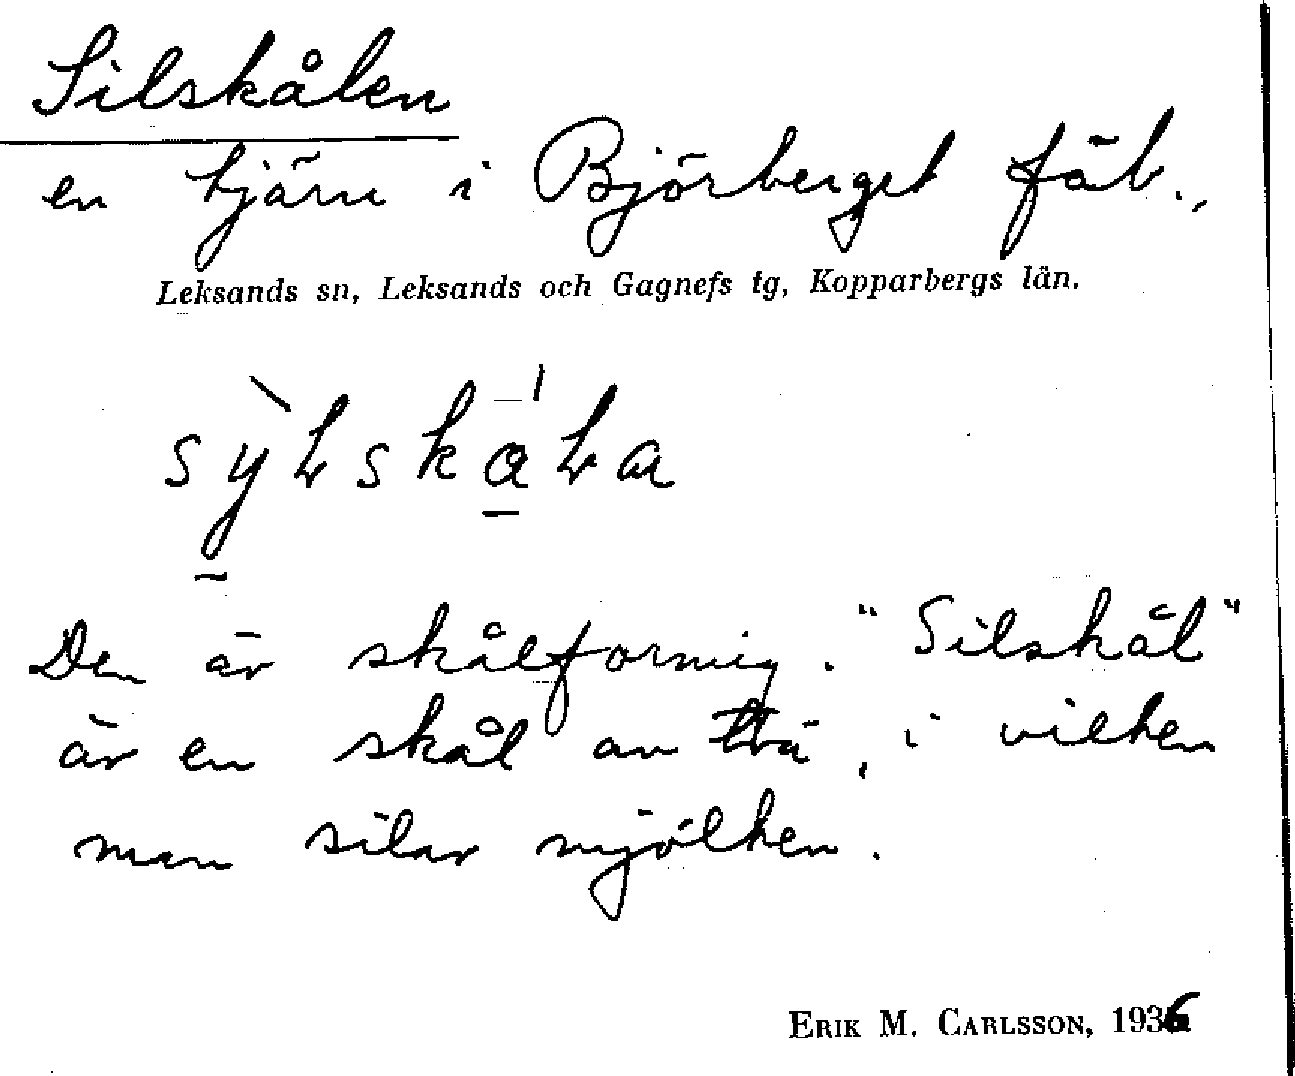 Silskålen
en tjärn i Björberget fäb.,
Leksands sn, Leksands och Gagnefs tg, Kopparbergs län.
Den är skålformig. "Silskål"
är en skål av trä, i vilken
man silar mjölken.
ERIK M. CARLSSON, 1936